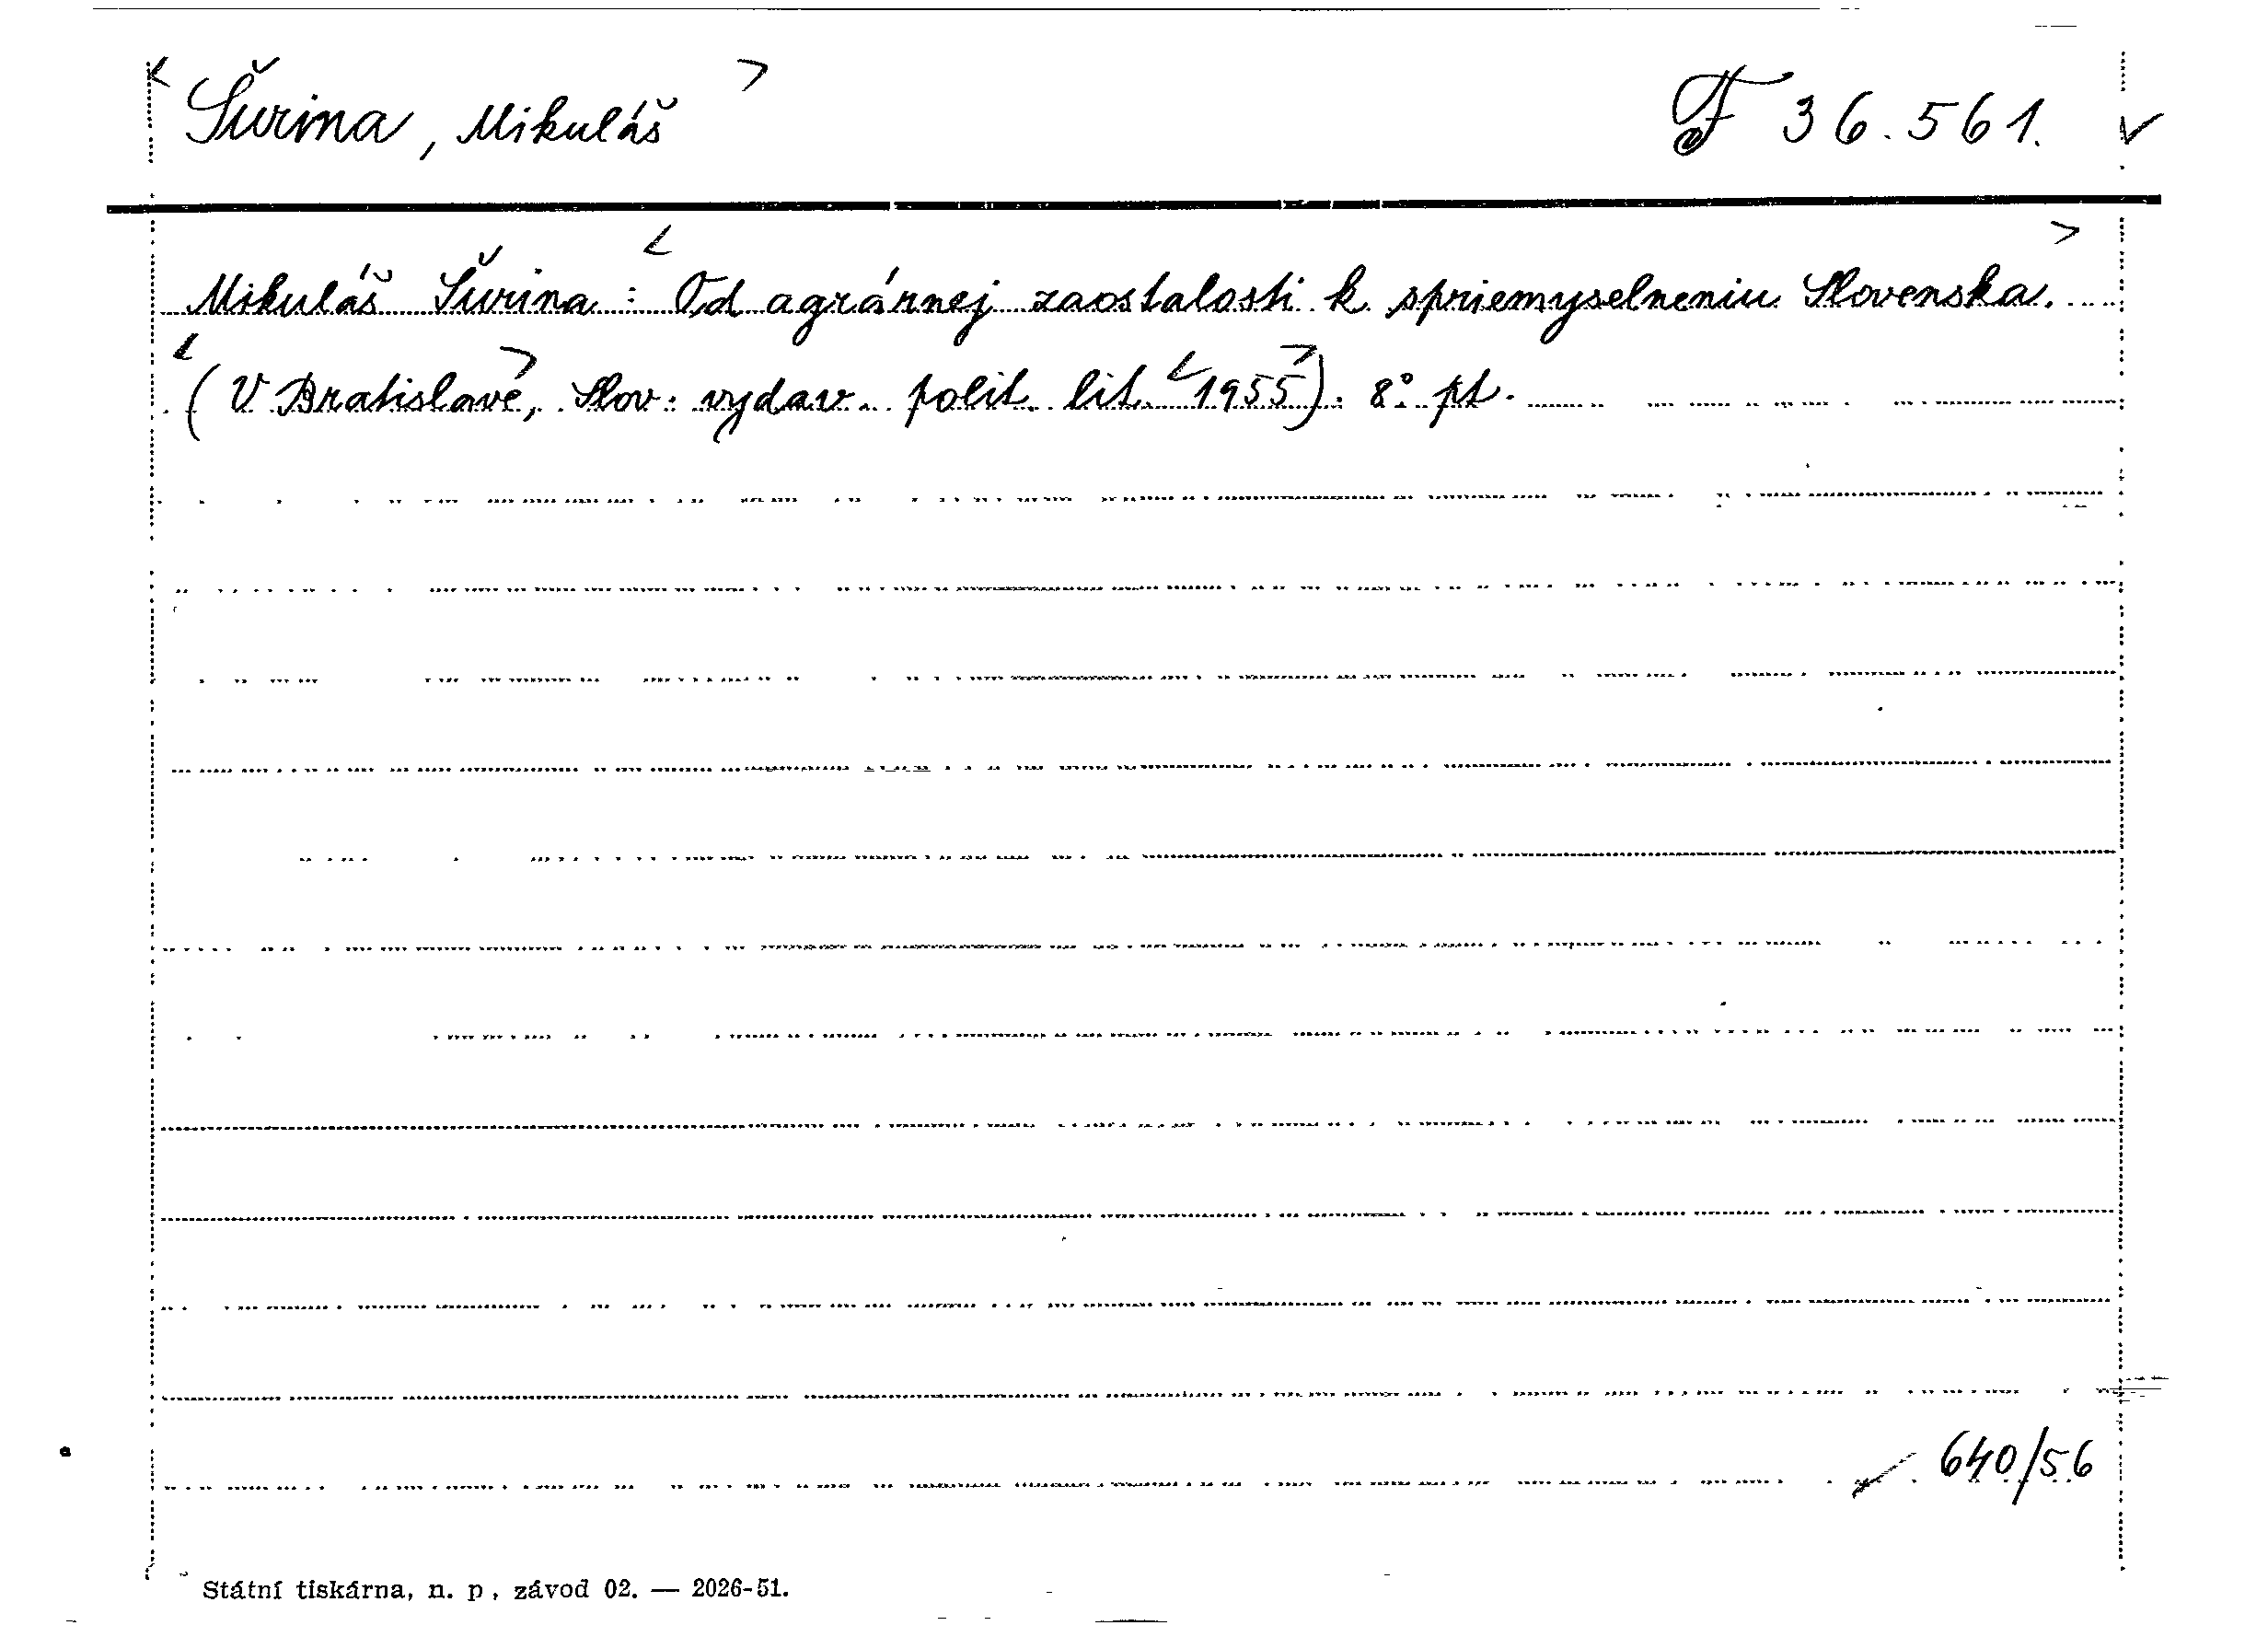 < Šurina, Mikuláš > F 36.561. ✓
Mikuláš Šurina: < Od agrárnej zaostalosti k spriemyselneniu Slovenska. >
< (V Bratislave >, Slov. vydav. polit. lit. < 1955 >). 8° pt.
640/56
Státní tiskárna, n. p., závod 02. — 2026-51.